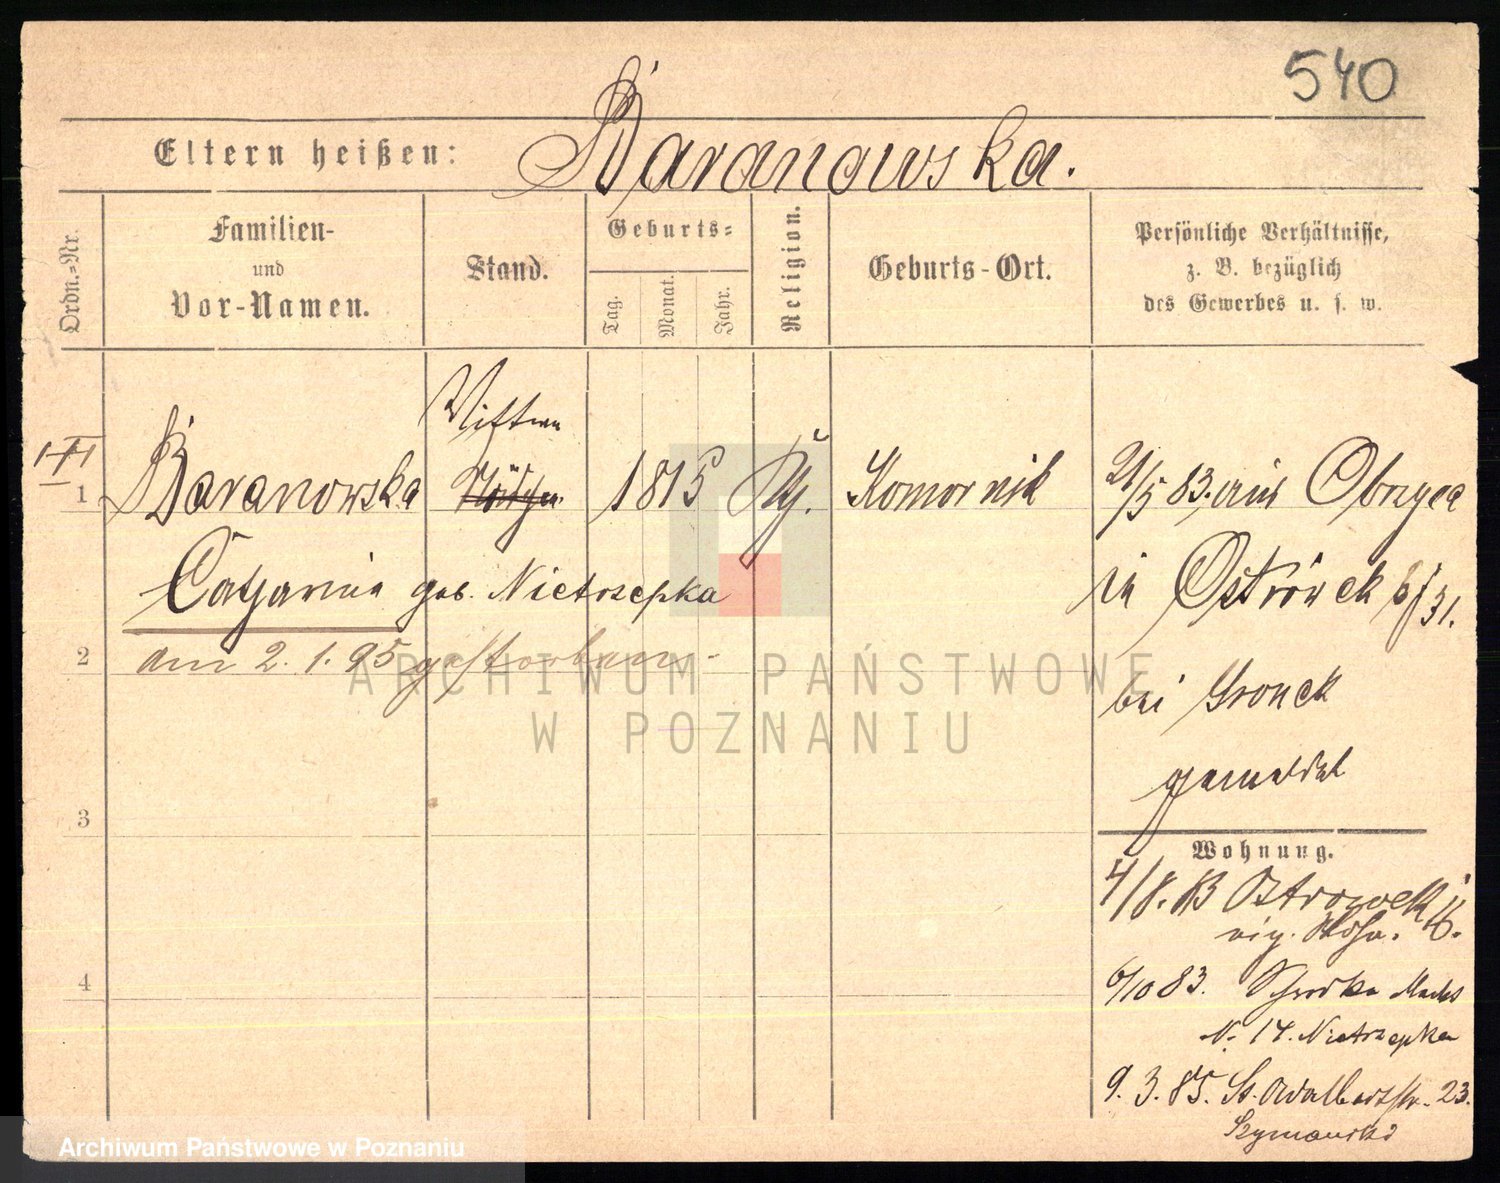 540
Eltern heißen: Baranowska.
Ordn.-Nr.
Familien-
und
Vor-Namen.
Stand.
Geburts-
Tag.
Monat.
Jahr.
Religion.
Geburts-Ort.
Persönliche Verhältnisse,
z. B. bezüglich
des Gewerbes u. s. w.
Wittwe
1 Baranowska 1815 Komornik 21/5 83. aus Obrzyca
Catharina geb. Nietrzepka in Ostrówek 31.
2 am 2. 1. 95 gestorben.
bei Gronek
gemeldet
3
Wohnung.
4/8. 83 Ostrowek
4
6/10 83. Schrodka Markt
N. 14. Nietrzepka
9. 3. 85. St. Adalbertstr. 23.
Szymanski
ARCHIWUM PAŃSTWOWE
W POZNANIU
Archiwum Państwowe w Poznaniu